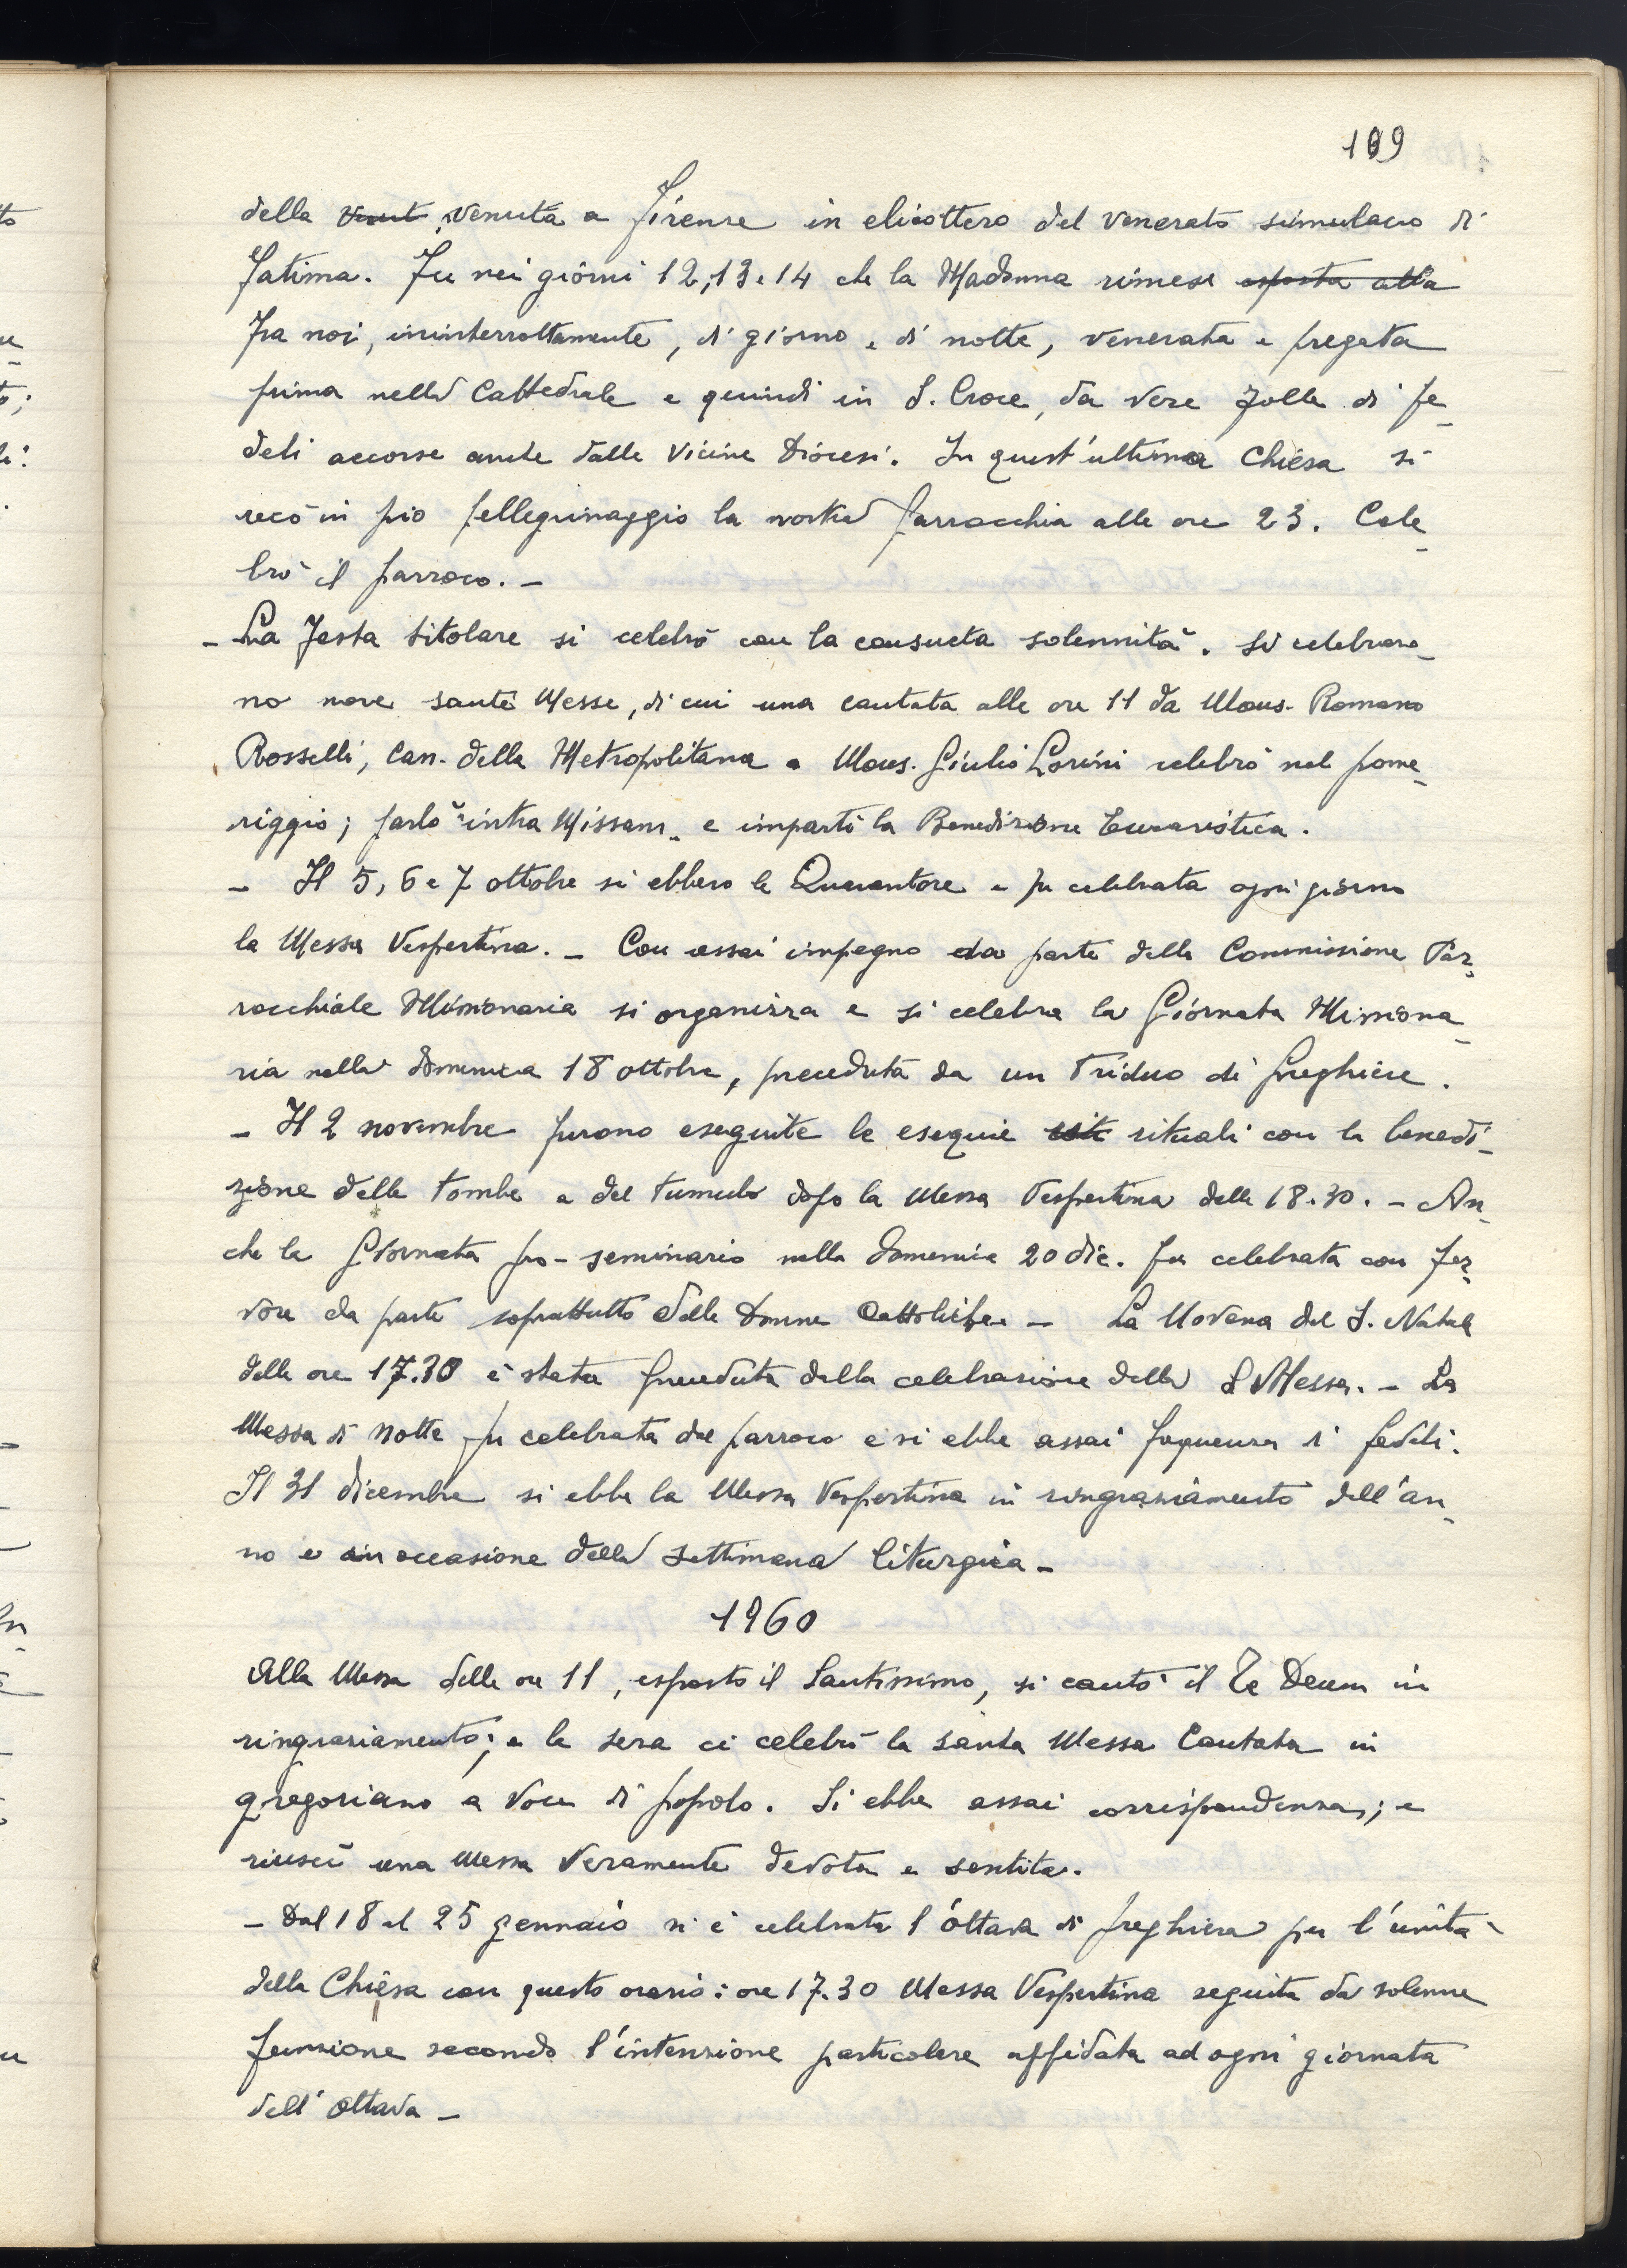 109
della venuta a Firenze in elicottero del venerato simulacro di
Fatima. Fu nei giorni 12, 13 e 14 che la Madonna rimese esposta alla
fra noi, ininterrottamente, di giorno e di notte, venerata e pregata
prima nella Cattedrale e quindi in S. Croce, da vere folle di fe-
deli accorse anche dalle vicine Diocesi. In quest'ultima Chiesa si
recò in pio pellegrinaggio la nostra parrocchia alle ore 23. Cele-
brò il parroco. -
- La Festa titolare si celebrò con la consueta solennità. Si celebraro-
no nove sante Messe, di cui una cantata alle ore 11 da Mons. Romano
Rosselli, Can. della Metropolitana e Mons. Giulio Lorini celebrò nel pome-
riggio; parlò "intra Missam" e impartì la Benedizione Eucaristica.
- Il 5, 6 e 7 ottobre si ebbero le Quarantore e fu celebrata ogni giorno
la Messa Vespertina. - Con assai impegno da parte della Commissione Par-
rocchiale Missionaria si organizza e si celebra la Giornata Missiona-
ria nella domenica 18 ottobre, preceduta da un Triduo di preghiere.
- Il 2 novembre furono eseguite le esequie rituali con la benedi-
zione delle tombe e del tumulo dopo la Messa Vespertina delle 18.30. - An-
che la Giornata pro-seminario nella domenica 20 dic. fu celebrata con fer-
vore da parte soprattutto delle Donne Cattoliche - La Novena del S. Natale
delle ore 17.30 è stata preceduta dalla celebrazione della S Messa. - La
Messa di Notte fu celebrata dal parroco e si ebbe assai frequenza di fedeli.
Il 31 dicembre si ebbe la Messa Vespertina in ringraziamento dell'an-
no e in occasione della Settimana liturgica -
1960
Alla Messa delle ore 11, esposto il Santissimo, si cantò il Te Deum in
ringraziamento; e la sera ci celebrò la santa Messa Cantata in
gregoriano a voce di popolo. Si ebbe assai corrispondenza; e
riuscì una Messa veramente devota e sentita.
- Dal 18 al 25 gennaio si è celebrata l'ottava di preghiera per l'unità
della Chiesa con questo orario: ore 17.30 Messa Vespertina seguita da solenne
funzione secondo l'intenzione particolare affidata ad ogni giornata
dell'Ottava -